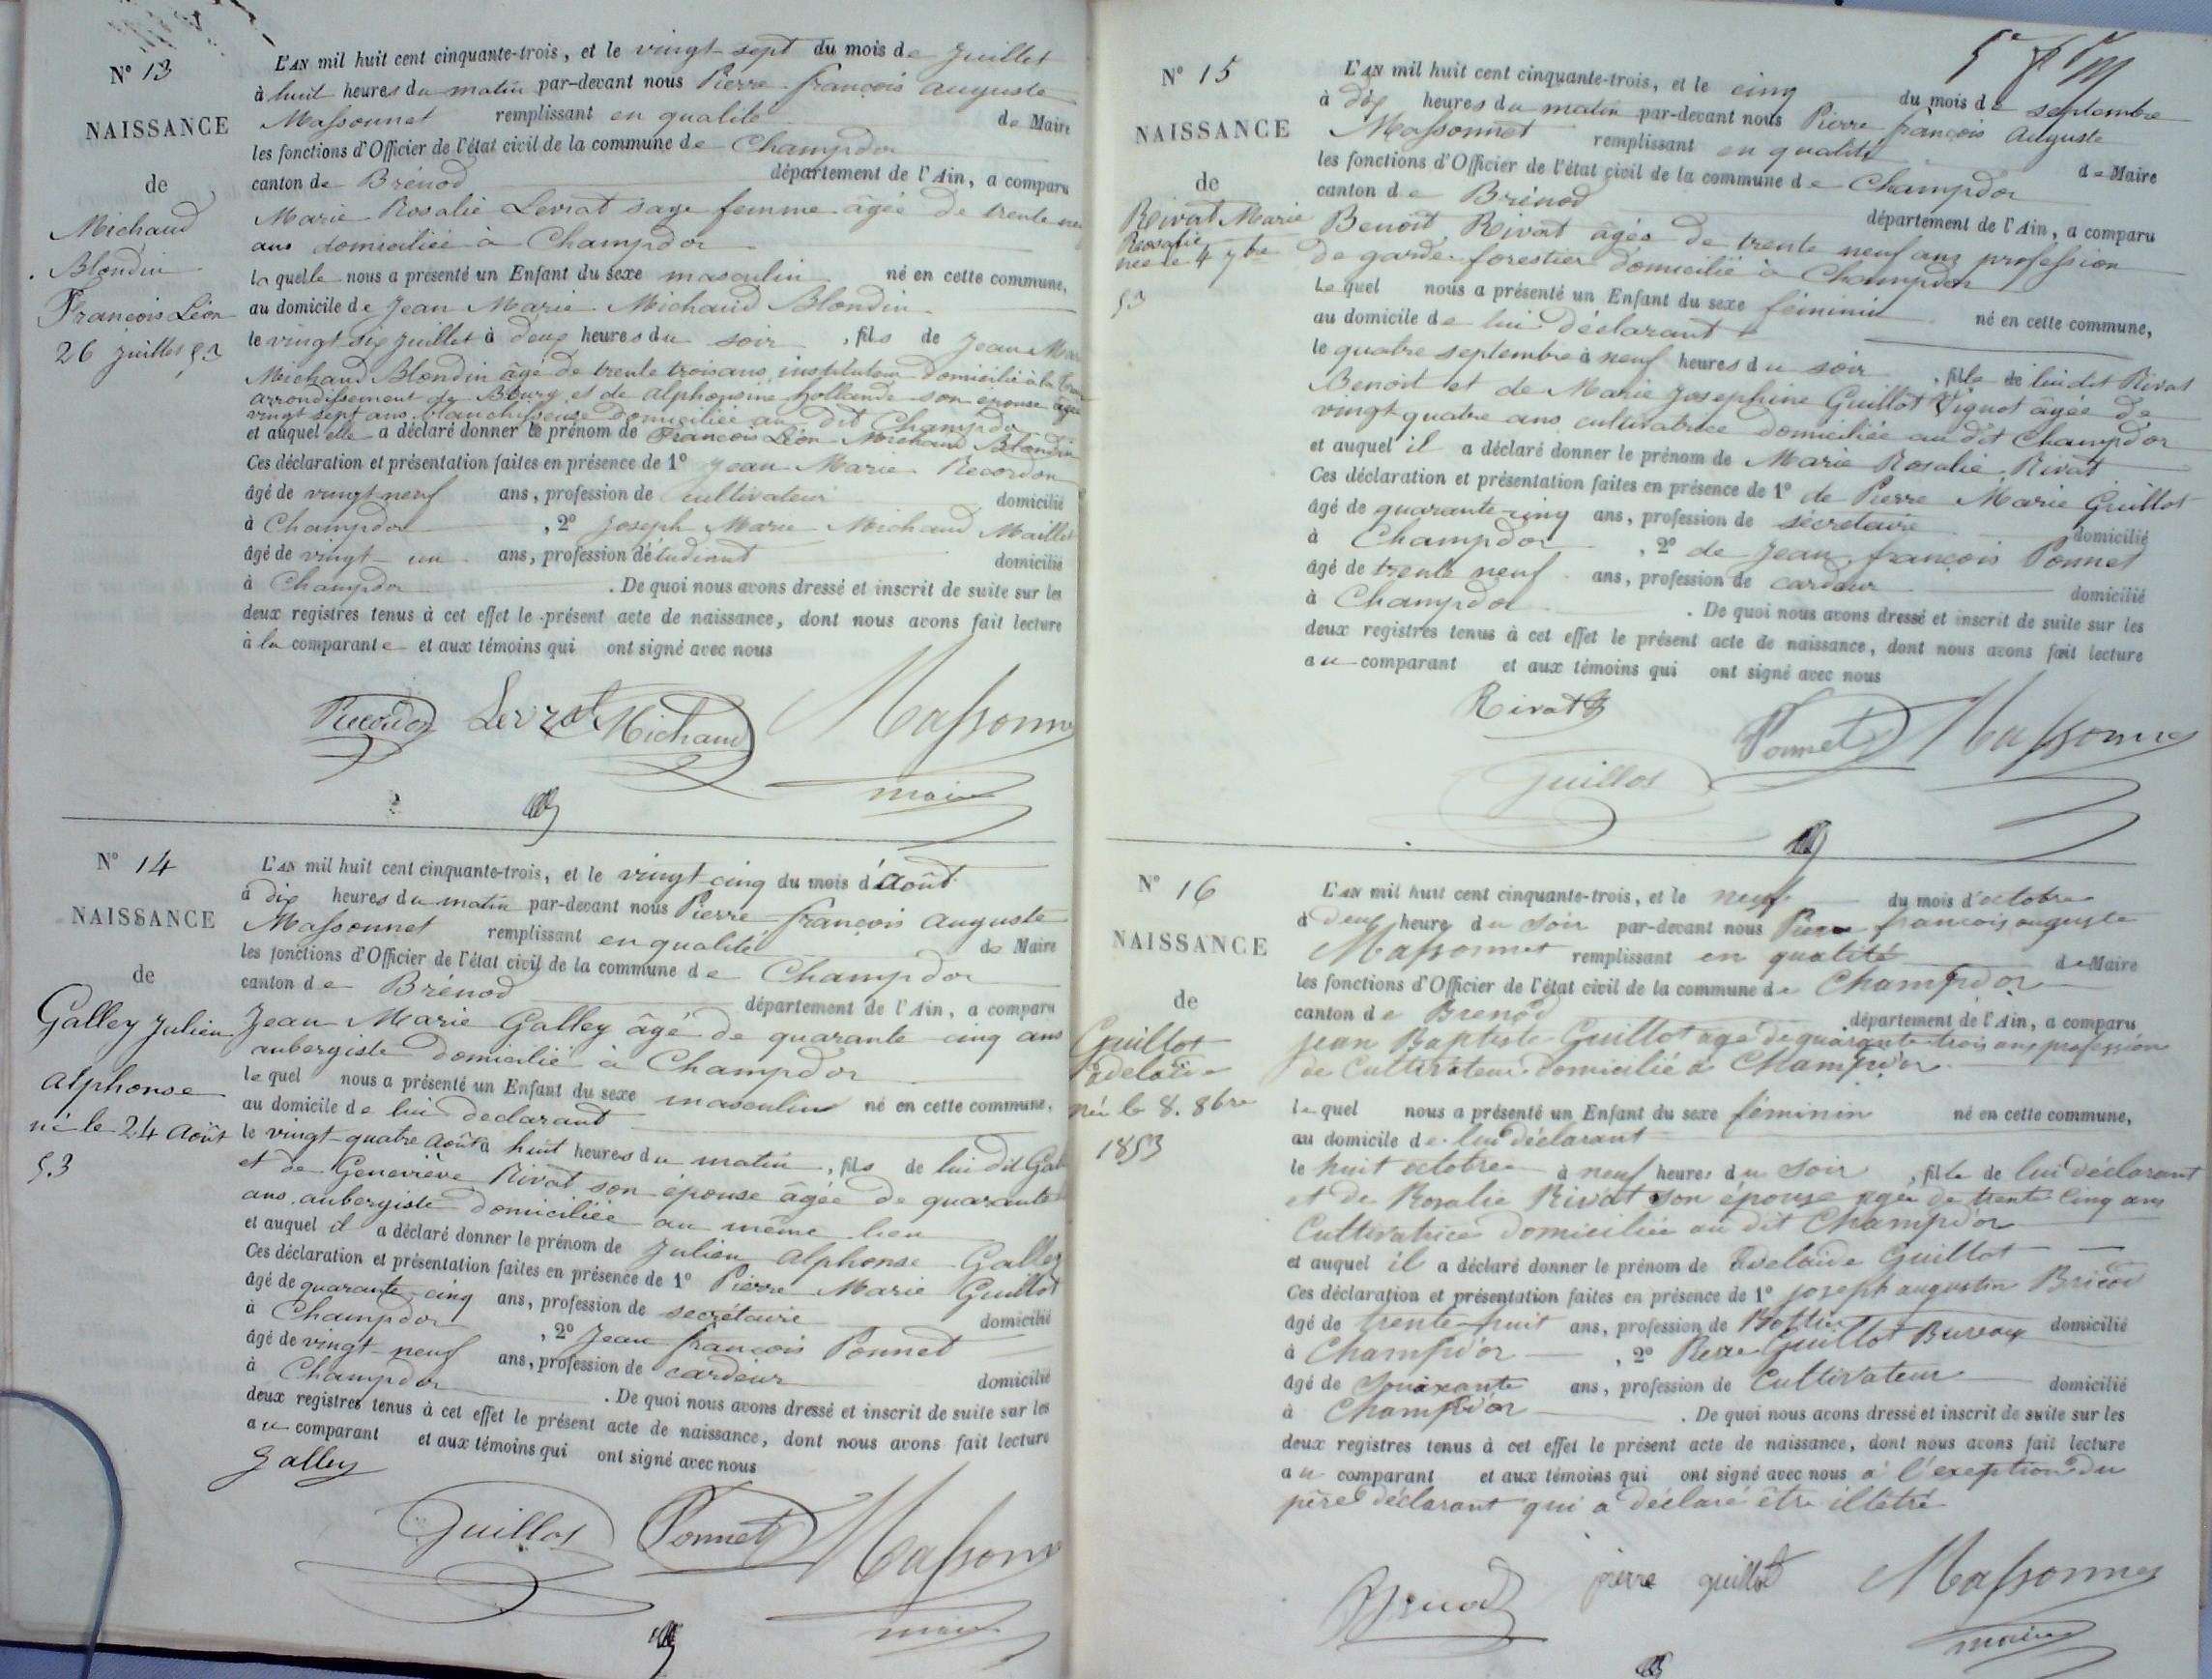 N° 13
NAISSANCE
de
Michaud
Blondin
François Léon
26 Juillet 53
L'AN mil huit cent cinquante-trois, et le vingt sept du mois de Juillet
à huit heures du matin par-devant nous Pierre françois auguste
Massonnet remplissant en qualité de Maire
les fonctions d'Officier de l'état civil de la commune de Champdor
canton de Brénod département de l'Ain, a comparu
Marie Rosalie Levrat sage femme âgée de trente
ans domiciliée à Champdor
la quelle nous a présenté un Enfant du sexe masculin né en cette commune,
au domicile de Jean Marie Michaud Blondin
le vingt six Juillet à deux heures du soir, fils de Jean
Michaud Blondin âgé de trente trois ans, instituteur domicilié à la
arrondissement de Bourg et de alphonsine hollande son epouse âgée
vingt sept ans blanchisseuse domiciliée au dit Champdor
et auquel elle a déclaré donner le prénom de François Léon Michaud Blondin
Ces déclaration et présentation faites en présence de 1° Jean Marie Recordon
âgé de vingt neuf ans, profession de cultivateur domicilié
à Champdor, 2° Joseph Marie Michaud Maillet
âgé de vingt un ans, profession d'étudiant domicilié
à Champdor. De quoi nous avons dressé et inscrit de suite sur les
deux registres tenus à cet effet le présent acte de naissance, dont nous avons fait lecture
à la comparante et aux témoins qui ont signé avec nous
Recordon Levrat Michaud Massonne
maire
N° 14
NAISSANCE
de
Galley Julien
alphonse
né le 24 Août
53
L'AN mil huit cent cinquante-trois, et le vingt cinq du mois d'août
à dix heures du matin par-devant nous Pierre françois auguste
Massonnet remplissant en qualité de Maire
les fonctions d'Officier de l'état civil de la commune de Champdor
canton de Brénod département de l'Ain, a comparu
Jean Marie Galley âgé de quarante cinq ans
aubergiste domicilié à Champdor
le quel nous a présenté un Enfant du sexe masculin né en cette commune,
au domicile de lui declarant
le vingt quatre août à huit heures du matin, fils de lui dit
et de Geneviève Rivat son épouse âgée de quarante
ans aubergiste domiciliée au même lieu
et auquel il a déclaré donner le prénom de Julien alphonse Galley
Ces déclaration et présentation faites en présence de 1° Pierre Marie Guillot
âgé de quarante cinq ans, profession de secrétaire domicilié
à Champdor, 2° Jean françois Ponnet
âgé de vingt neuf ans, profession de cardeur domicilié
à Champdor. De quoi nous avons dressé et inscrit de suite sur les
deux registres tenus à cet effet le présent acte de naissance, dont nous avons fait lecture
au comparant et aux témoins qui ont signé avec nous
Galley
Guillot Ponnet Massonne
maire
N° 15
NAISSANCE
de
Rivat Marie
Rosalie
née le 4 7bre
53
L'AN mil huit cent cinquante-trois, et le cinq du mois de septembre
à dix heures du matin par-devant nous Pierre françois Auguste
Massonnet remplissant en qualité de Maire
les fonctions d'Officier de l'état civil de la commune de Champdor
canton de Brénod département de l'Ain, a comparu
Benoît Rivat âgée de trente neuf ans profession
de garde forestier domicilié à Champdor
Le quel nous a présenté un Enfant du sexe féminin né en cette commune,
au domicile de lui déclarant
le quatre septembre à neuf heures du soir, fille de lui dit Rivat
Benoit et de Marie Josephine Guillot Vignot âgée de
vingt quatre ans, cultivatrice domiciliée au dit Champdor
et auquel il a déclaré donner le prénom de Marie Rosalie Rivat
Ces déclaration et présentation faites en présence de 1° de Pierre Marie Guillot
âgé de quarante cinq ans, profession de sécrétaire domicilié
à Champdor, 2° de Jean françois Ponnet
âgé de trente neuf ans, profession de cardeur domicilié
à Champdor. De quoi nous avons dressé et inscrit de suite sur les
deux registres tenus à cet effet le présent acte de naissance, dont nous avons fait lecture
au comparant et aux témoins qui ont signé avec nous
Rivat B
Guillot Ponnet Massonne
N° 16
NAISSANCE
de
Guillot
adelaïde
née le 8. 8bre
1853
L'AN mil huit cent cinquante-trois, et le neuf du mois d'octobre
à deux heure du soir par-devant nous Pierre francois auguste
Massonnet remplissant en qualité de Maire
les fonctions d'Officier de l'état civil de la commune de Champd'or
canton de Brenod département de l'Ain, a comparu
Jean Baptiste Guillot agé de quarante trois ans profession
de Cultivateur domicilié à Champd'or
le quel nous a présenté un Enfant du sexe féminin né en cette commune,
au domicile de lui déclarant
le huit octobre à neuf heures du soir, fille de lui déclarant
et de Rosalie Rivat son épouse agée de trente cinq ans
Cultivatrice domiciliée au dit Champd'or
et auquel il a déclaré donner le prénom de adelaïde Guillot
Ces déclaration et présentation faites en présence de 1° joseph augustin
âgé de trente huit ans, profession de domicilié
à Champd'or, 2° Pierre Guillot Buvoux
âgé de Souixante ans, profession de Cultivateur domicilié
à Champd'or. De quoi nous avons dressé et inscrit de suite sur les
deux registres tenus à cet effet le présent acte de naissance, dont nous avons fait lecture
au comparant et aux témoins qui ont signé avec nous à l'exeption du
père déclarant qui a déclaré être illétré
pierre guillot Massonne
maire